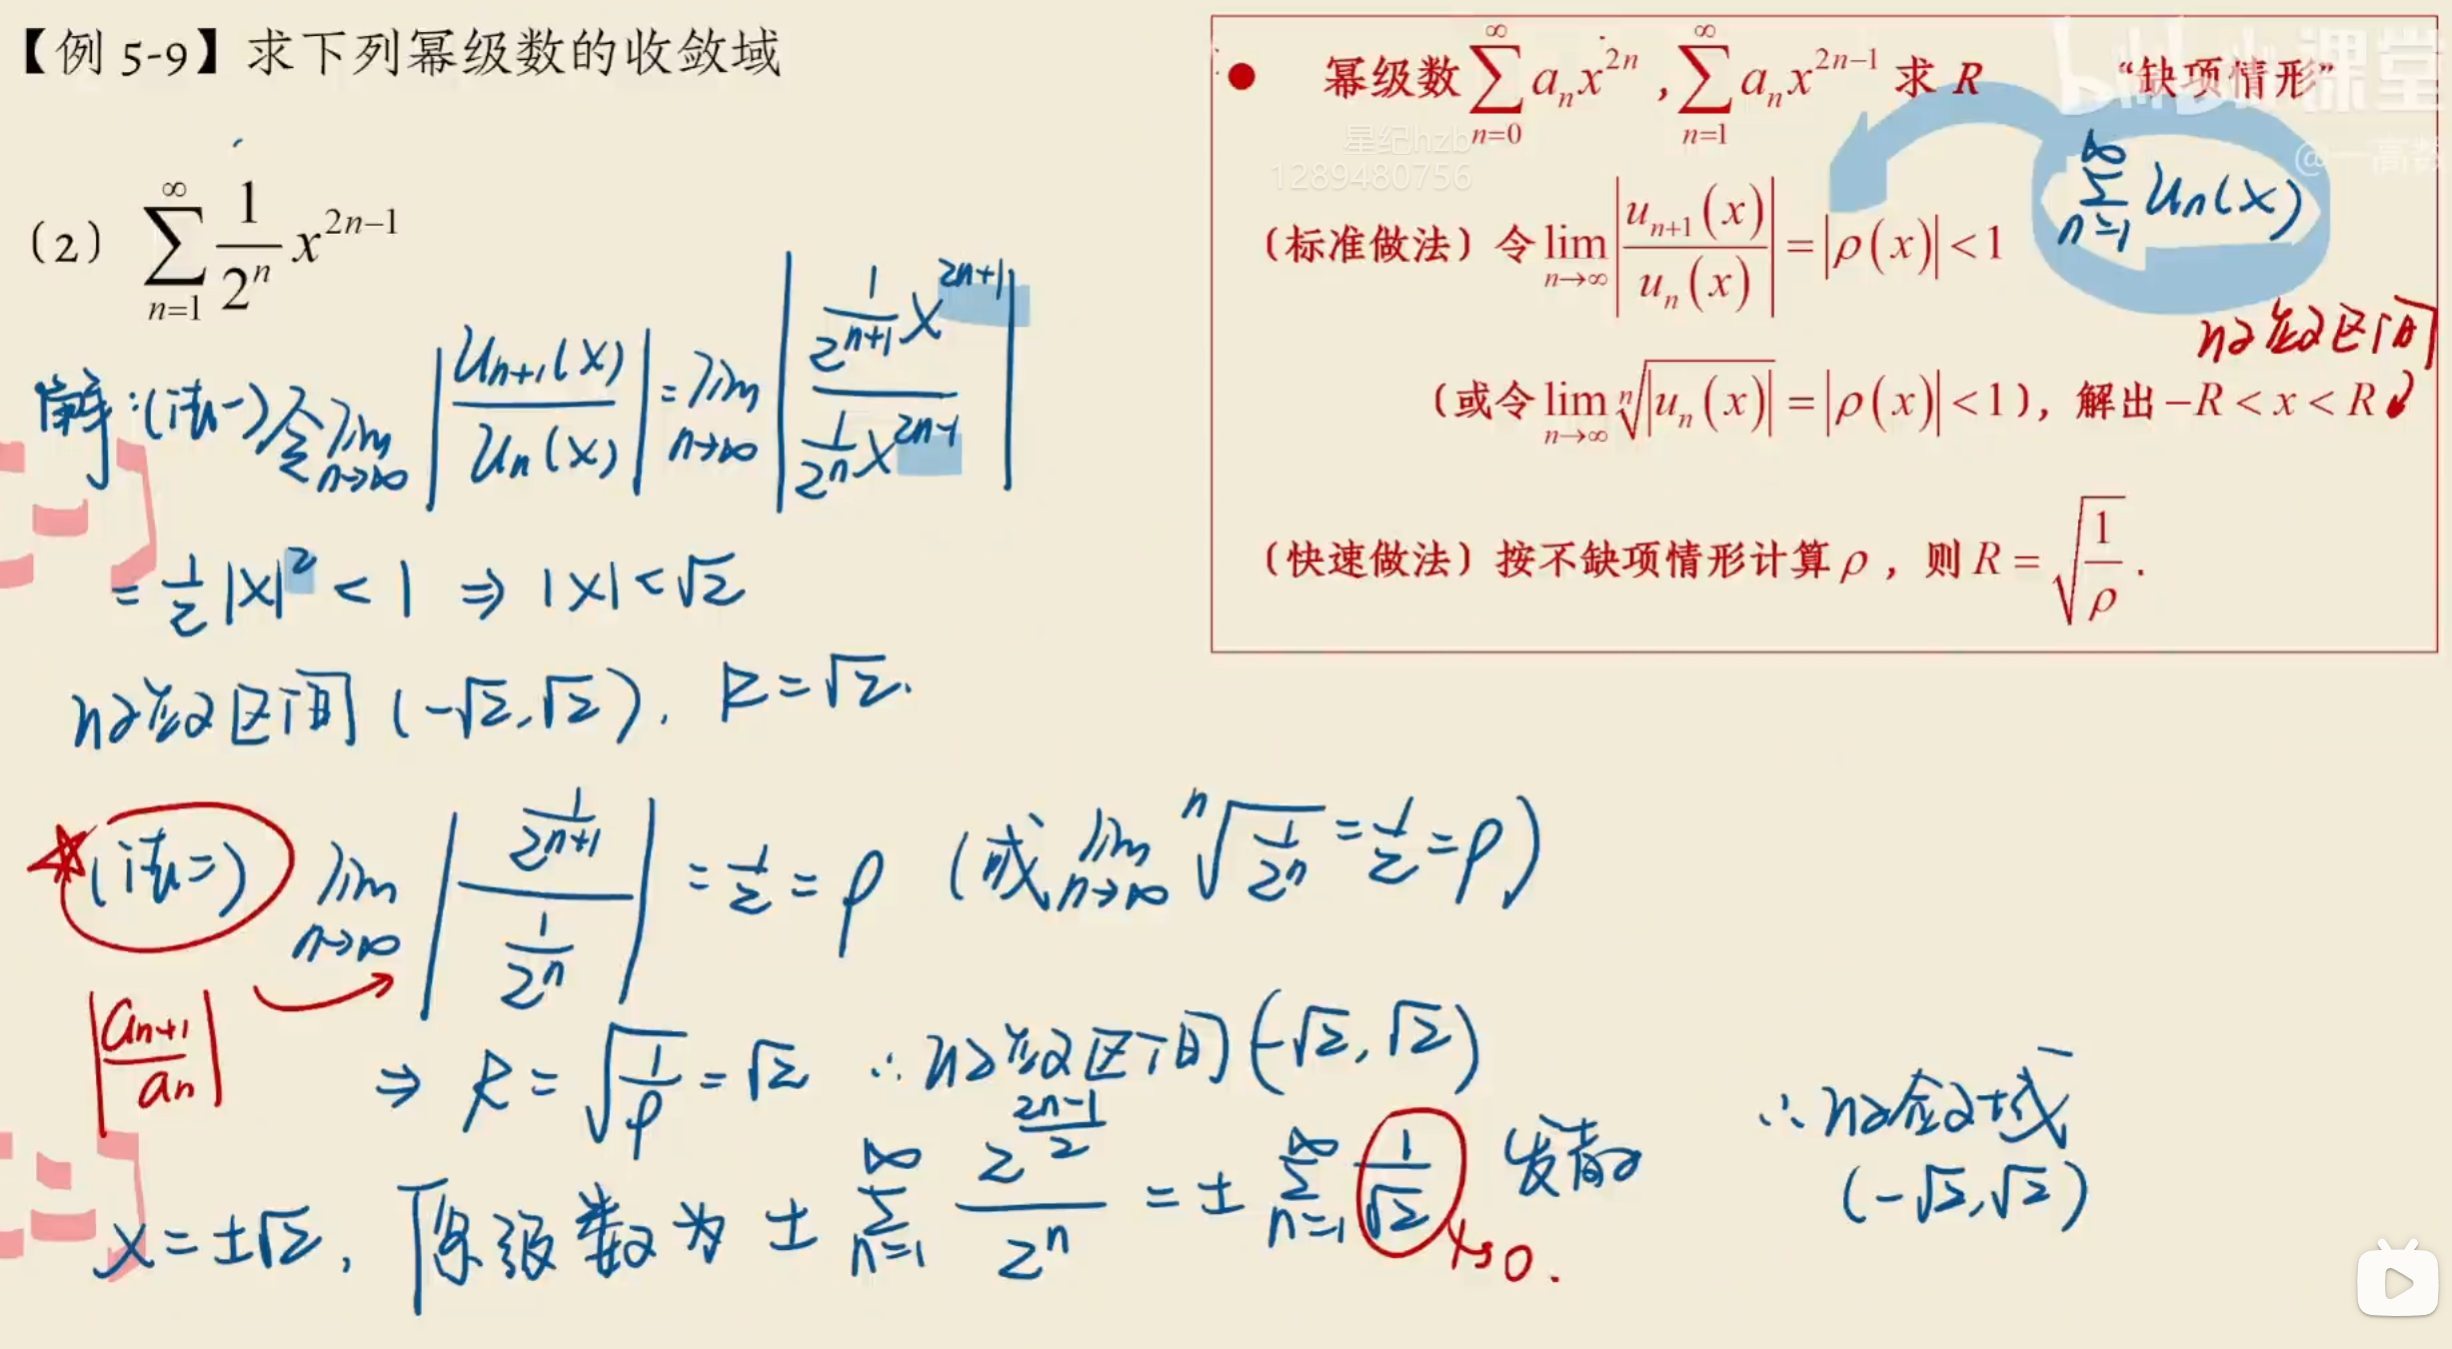 【例 5-9】求下列幂级数的收敛域
（2） $\sum_{n=1}^{\infty} \frac{1}{2^n} x^{2n-1}$
解：(法一) 令 $\lim_{n\to\infty} \left|\frac{u_{n+1}(x)}{u_n(x)}\right| = \lim_{n\to\infty} \left|\frac{\frac{1}{2^{n+1}}x^{2n+1}}{\frac{1}{2^n}x^{2n-1}}\right|$
$= \frac{1}{2}|x|^2 < 1 \Rightarrow |x| < \sqrt{2}$
收敛区间 $(-\sqrt{2}, \sqrt{2})$, $R = \sqrt{2}$.
(法二) $\lim_{n\to\infty} \left|\frac{\frac{1}{2^{n+1}}}{\frac{1}{2^n}}\right| = \frac{1}{2} = \rho$ (或 $\lim_{n\to\infty} \sqrt[n]{\frac{1}{2^n}} = \frac{1}{2} = \rho$)
$\left|\frac{a_{n+1}}{a_n}\right|$
$\Rightarrow R = \sqrt{\frac{1}{\rho}} = \sqrt{2}$ ∴ 收敛区间 $(-\sqrt{2}, \sqrt{2})$
$x = \pm\sqrt{2}$, 原级数为 $\pm \sum_{n=1}^{\infty} \frac{2^{\frac{2n-1}{2}}}{2^n} = \pm \sum_{n=1}^{\infty} \frac{1}{\sqrt{2}}$ 发散
$\nrightarrow 0.$
∴ 收敛域
$(-\sqrt{2}, \sqrt{2})$
● 幂级数 $\sum_{n=0}^{\infty} a_n x^{2n}$ , $\sum_{n=1}^{\infty} a_n x^{2n-1}$ 求 R “缺项情形”
$\sum_{n=1}^{\infty} u_n(x)$
（标准做法）令 $\lim_{n\to\infty} \left|\frac{u_{n+1}(x)}{u_n(x)}\right| = |\rho(x)| < 1$
收敛区间
（或令 $\lim_{n\to\infty} \sqrt[n]{|u_n(x)|} = |\rho(x)| < 1$），解出 $-R < x < R$
（快速做法）按不缺项情形计算 $\rho$ ，则 $R = \sqrt{\frac{1}{\rho}}$ .
星纪hzb
1289480756
课堂
@一高数